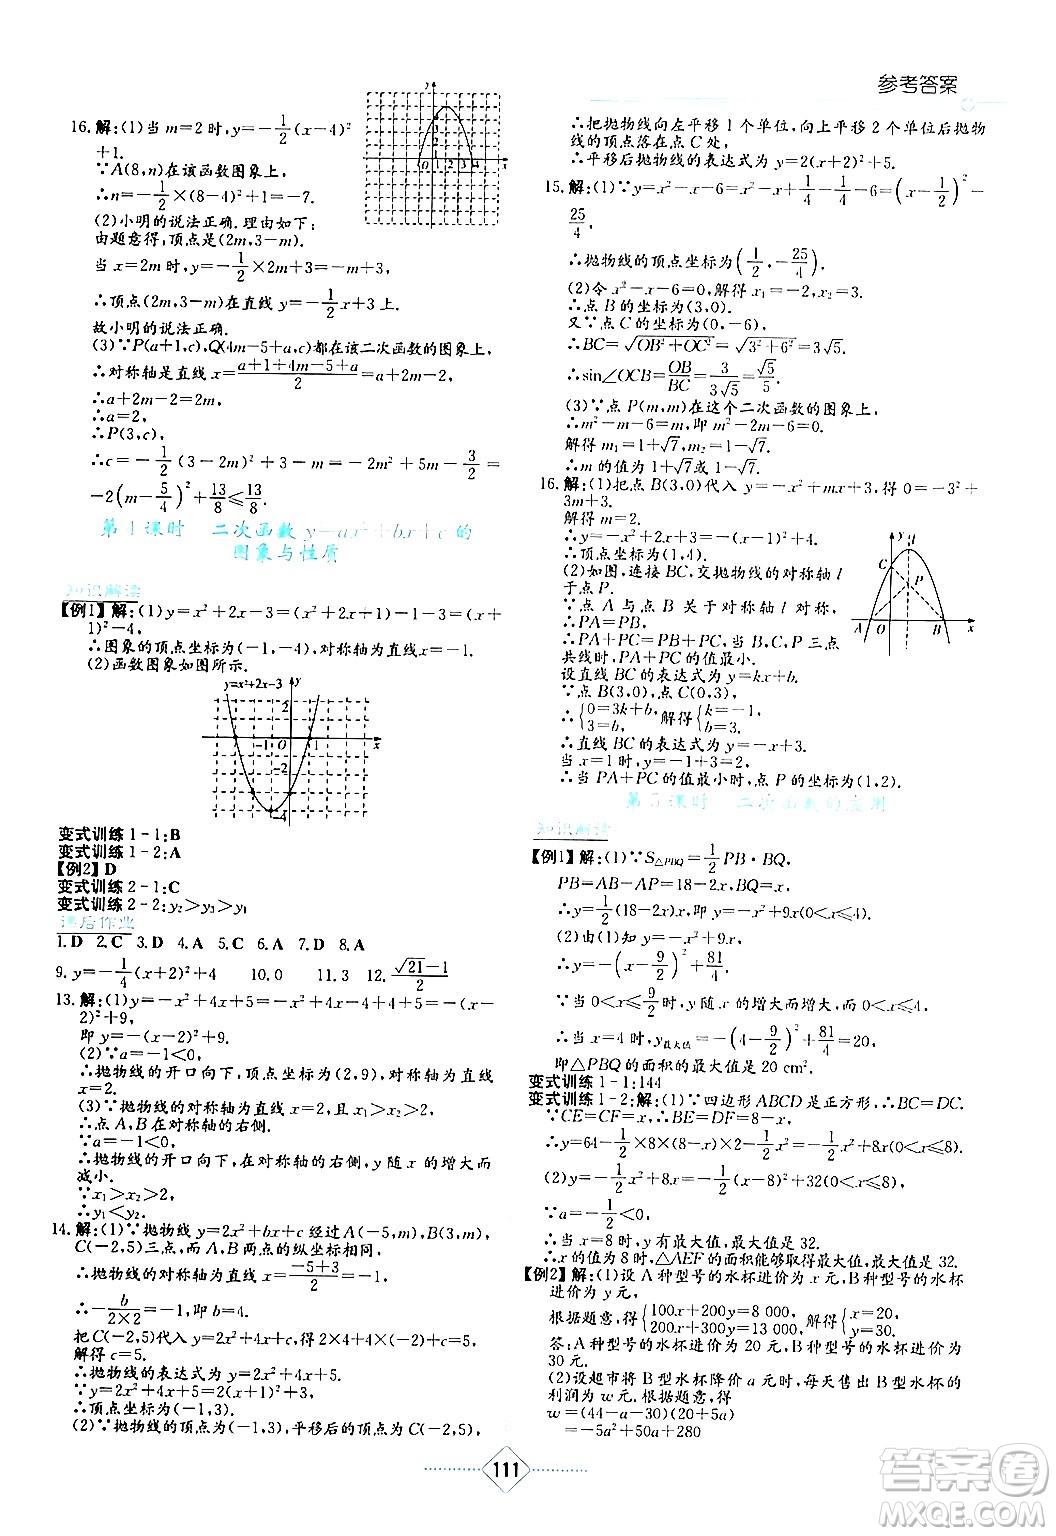 参考答案
16.解:(1)当 m=2时,y=-\frac{1}{2}(x-4)²
+1.
∵A(8,n)在该函数图象上,
∴n=-\frac{1}{2}×(8-4)²+1=-7.
(2)小明的说法正确.理由如下:
由题意得,顶点是(2m,3-m).
当 x=2m 时,y=-\frac{1}{2}×2m+3=3-m,
∴顶点(2m,3-m)在直线 y=-\frac{1}{2}x+3上.
故小明的说法正确.
(3)∵P(a+1,c),Q(4m-5+a,c)都在该二次函数的图象上,
∴对称轴是直线 x=\frac{a+1+4m-5+a}{2}=2m,
∴a+2m-2=2m,
∴a=2,
∴P(3,c),
∴c=-\frac{1}{2}(3-2m)²-m+3=-2m²+5m-\frac{3}{2}=
-2(m-\frac{5}{4})²+\frac{13}{8}≤\frac{13}{8}.
第4课时 二次函数 y=ax²+bx+c 的
图象与性质
知识解读
【例1】解:(1)y=x²+2x-3=x²+2x+1-1-3=(x+
1)²-4,
∴图象的顶点坐标为(-1,-4),对称轴为直线x=-1.
(2)函数图象如图所示.
y=x²+2x-3 y
-1 O 1 x
-2
-4
变式训练 1-1:B
变式训练 1-2:A
【例2】D
变式训练 2-1:C
变式训练 2-2:y₂>y₃>y₁
课后作业
1.D 2.C 3.D 4.A 5.C 6.A 7.D 8.A
9.y=-\frac{1}{4}(x+2)²+4 10.0 11.3 12.\frac{\sqrt{21}-1}{2}
13.解:(1)y=-x²+4x+5=-x²+4x-4+4+5=-(x-
2)²+9,
即 y=-(x-2)²+9.
(2)∵a=-1<0,
∴抛物线的开口向下,顶点坐标为(2,9),对称轴为直线
x=2.
(3)∵抛物线的对称轴为直线 x=2,且 x₁>x₂>2,
∴点 A,B在对称轴的右侧.
∵a=-1<0,
∴抛物线的开口向下,在对称轴的右侧,y 随 x 的增大而
减小.
∵x₁>x₂>2,
∴y₁<y₂.
14.解:(1)∵抛物线 y=2x²+bx+c 经过 A(-5,m),B(3,m),
C(-2,5)三点,而 A,B 两点的纵坐标相同,
∴抛物线的对称轴为直线 x=\frac{-5+3}{2}=-1,
∴-\frac{b}{2×2}=-1,即 b=4.
把 C(-2,5)代入 y=2x²+4x+c,得5=2×4+4×(-2)+c,
解得 c=5.
∴抛物线的表达式为 y=2x²+4x+5.
∵y=2x²+4x+5=2(x+1)²+3,
∴顶点坐标为(-1,3).
(2)∵抛物线的顶点为(-1,3),平移后的顶点为C(-2,5),
y
O 1 2 3 4 x
∴把抛物线向左平移 1 个单位,向上平移 2 个单位后抛物
线的顶点落在点 C处,
∴平移后抛物线的表达式为 y=2(x+2)²+5.
15.解:(1)∵y=x²-x-6=x²-x+\frac{1}{4}-\frac{1}{4}-6=(x-\frac{1}{2})²-
\frac{25}{4},
∴抛物线的顶点坐标为(\frac{1}{2},-\frac{25}{4}).
(2)令 x²-x-6=0,解得 x₁=-2,x₂=3.
∴点 B的坐标为(3,0).
又∵点 C的坐标为(0,-6),
∴BC=\sqrt{OB²+OC²}=\sqrt{3²+6²}=3\sqrt{5}.
∴sin∠OCB=\frac{OB}{BC}=\frac{3}{3\sqrt{5}}=\frac{\sqrt{5}}{5}.
(3)∵点 P(m,m)在这个二次函数的图象上,
∴m²-m-6=m,即 m²-2m-6=0,
解得 m₁=1+√7,m₂=1-√7.
∴m 的值为 1+√7或1-√7.
16.解:(1)把点 B(3,0)代入 y=-x²+mx+3,得 0=-3²+
3m+3,
解得 m=2,
∴y=-x²+2x+3=-(x-1)²+4.
∴顶点坐标为(1,4).
(2)如图,连接 BC,交抛物线的对称轴 l
于点 P,连接 PA.
∵点 A 与点 B 关于对称轴 l 对称,
∴PA=PB,
∴PA+PC=PB+PC,当 B,C,P 三点
共线时,PA+PC的值最小.
设直线 BC的表达式为 y=kx+b.
∵点 B(3,0),点 C(0,3),
∴{0=3k+b,3=b,解得{k=-1,b=3.
∴直线 BC的表达式为 y=-x+3.
当 x=1时,y=-1+3=2,
∴当 PA+PC的值最小时,点 P的坐标为(1,2).
y l
C P
A O B x
第5课时 二次函数的应用
知识解读
【例1】解:(1)∵S△PBQ=\frac{1}{2}PB·BQ,
PB=AB-AP=18-2x,BQ=x,
∴y=\frac{1}{2}(18-2x)x,即 y=-x²+9x(0<x≤4).
(2)由(1)知 y=-x²+9x,
∴y=-(x-\frac{9}{2})²+\frac{81}{4}.
∵当 0<x≤\frac{9}{2}时,y 随 x 的增大而增大,而0<x≤4,
∴当 x=4时,y最大值=-(4-\frac{9}{2})²+\frac{81}{4}=20,
即△PBQ的面积的最大值是 20 cm².
变式训练 1-1:144
变式训练 1-2:解:(1)∵四边形 ABCD是正方形,∴BC=DC.
∵CE=CF=x,∴BE=DF=8-x,
∴y=64-\frac{1}{2}×8×(8-x)×2-\frac{1}{2}x²=-\frac{1}{2}x²+8x(0<x<8).
(2)y=-\frac{1}{2}x²+8x=-\frac{1}{2}(x-8)²+32(0<x≤8),
∵a=-\frac{1}{2}<0,
∴当 x=8时,y 有最大值,最大值是 32.
∴x 的值为 8 时,△AEF的面积能够取得最大值,最大值是 32.
【例2】解:(1)设 A种型号的水杯进价为 x 元,B种型号的水杯
进价为 y 元,
根据题意,得{100x+200y=8 000,200x+300y=13 000,解得{x=20,y=30.
答:A 种型号的水杯进价为 20 元,B 种型号的水杯进价为
30 元.
(2)设超市将 B 种水杯降价 a元时,每天售出 B 种水杯的
利润为 w 元.根据题意,得
w=(44-a-30)(20+5a)
=-5a²+50a+280
111
答案圈
MXQE.COM